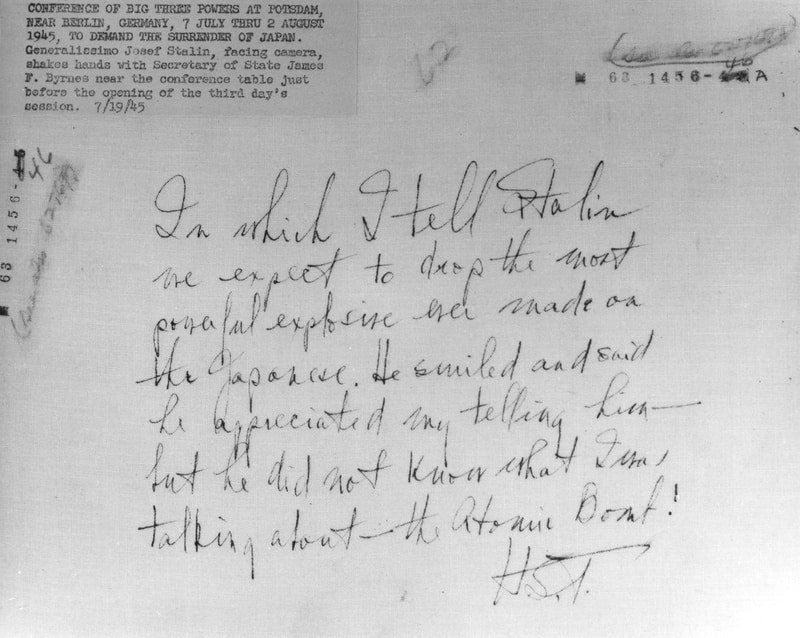 CONFERENCE OF BIG THREE POWERS AT POTSDAM,
NEAR BERLIN, GERMANY, 7 JULY THRU 2 AUGUST
1945, TO DEMAND THE SURRENDER OF JAPAN.
Generalissimo Josef Stalin, facing camera,
shakes hands with Secretary of State James
F. Byrnes near the conference table just
before the opening of the third day's
session. 7/19/45
62
63 1456-
46
A
63 1456-
46
In which I tell Stalin
we expect to drop the most
powerful explosive ever made on
the Japanese. He smiled and said
he appreciated my telling him—
but he did not know what I was
talking about—the Atomic Bomb!
H.S.T.